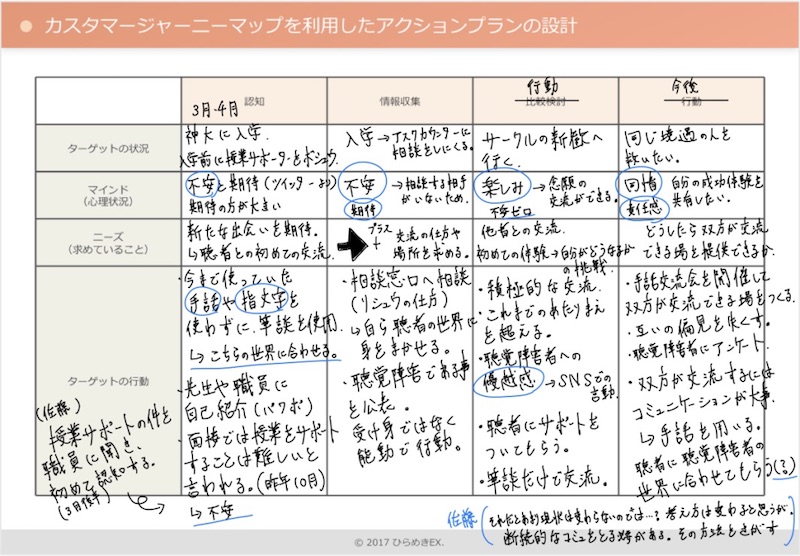 カスタマージャーニーマップを利用したアクションプランの設計
認知
3月・4月
情報収集
行動
比較検討
今後
行動
ターゲットの状況
神大に入学
入学前に授業サポーターをボシュウ
入学→アスクカウンターに
相談をしにくる。
サークルの新歓へ
行く。
同じ境遇の人を
救いたい。
マインド
(心理状況)
不安と期待(ツイッターより)
期待の方が大きい
不安
期待
→相談する相手
がいないため。
楽しみ
不安ゼロ
→念願の
交流ができる。
回指
責任感
自分の成功体験を
共有したい。
ニーズ
(求めていること)
新たな出会いを期待。
↳聴者との初めての交流。
プラス
+
交流の仕方や
場所を求める。
他者との交流。
初めての体験→自分がどうなるか
の挑戦
どうしたら双方が交流
できる場を提供できるか。
ターゲットの行動
・今まで使っていた
手話や指文字を
使わずに、筆談を使用
↳こちらの世界に合わせる。
・先生や職員に
自己紹介(パワポ)
・面接では授業をサポート
することは難しいと
言われる。(昨年10月)
↳不安
(佐藤)
授業サポートの件を
職員に聞き、
初めて認知する。
(3月後半)
・相談窓口へ相談
(リシュウの仕方)
↳自ら聴者の世界に
身をまかせる。
・聴覚障害である事
を公表。
受け身ではなく
能動で行動。
・積極的な交流。
・これまでのあたりまえ
を超える。
・聴覚障害者への
優越感→SNSでの
言動。
・聴者にサポートを
ついてもらう。
・筆談だけで交流。
・手話交流会を開催して
双方が交流できる場をつくる。
・互いの偏見を失くす。
・聴覚障害者にアンケート。
・双方が交流するには
コミュニケーションが大事。
↳手話を用いる。
聴者に聴覚障害者の
世界に合わせてもらう(る)
佐藤
(それだとあまり現状は変わらないのでは…? 考え方は変わると思うが、
断続的なコミュをとる場がある。その方法をさがす
© 2017 ひらめきEX.